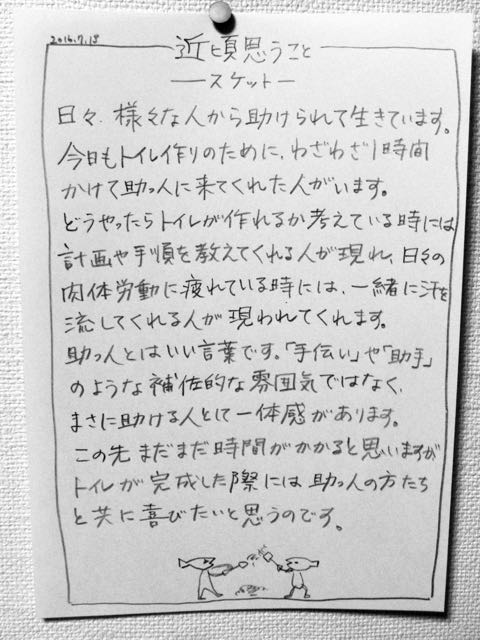 2016.7.18
近頃思うこと
―スケット―
日々、様々な人から助けられて生きています。
今日もトイレ作りのために、わざわざ1時間
かけて助っ人に来てくれた人がいます。
どうやったらトイレが作れるか考えている時には
計画や手順を教えてくれる人が現れ、日々の
肉体労働に疲れている時には、一緒に汗を
流してくれる人が現われてくれます。
助っ人とはいい言葉です。「手伝い」や「助手」
のような補佐的な雰囲気ではなく、
まさに助ける人として一体感があります。
この先まだまだ時間がかかると思いますが
トイレが完成した際には助っ人の方たち
と共に喜びたいと思うのです。